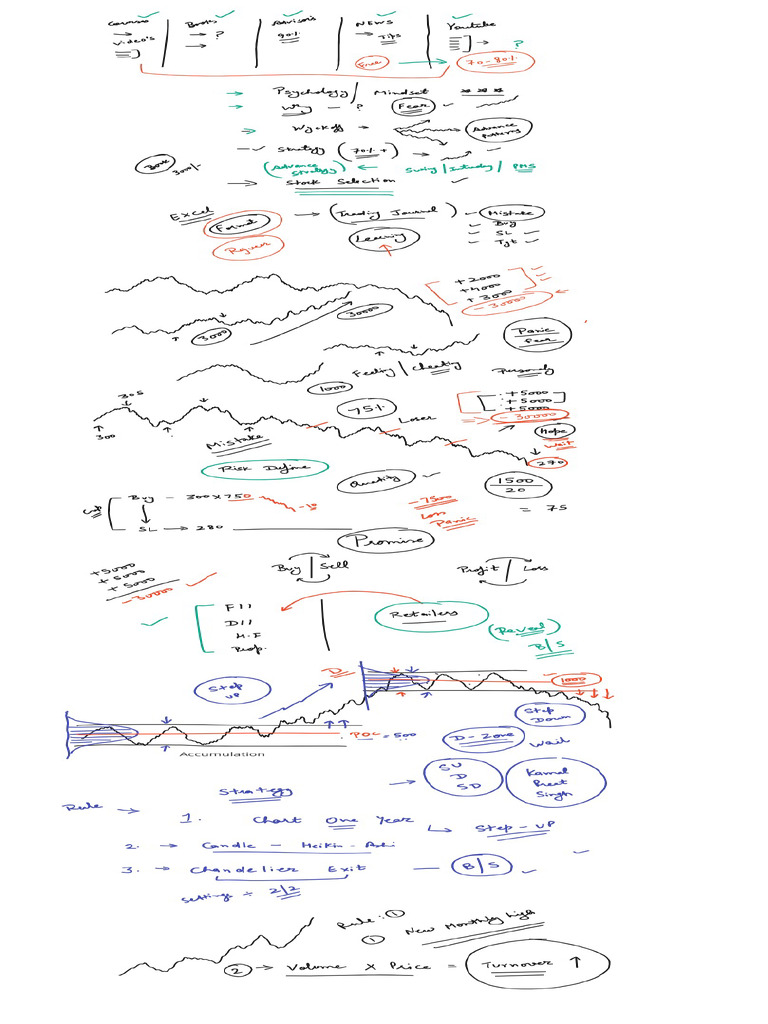 Courses | Books | Advisors | NEWS | Youtube
Video's → ? 90% → Tips → ?
Free → 70-80%
→ Psychology / Mindset
→ Why - ? Fear
→ Wyckoff → Advance Patterns
Strategy (70%+) →
Book 300/- (Advance Strategy) ← Swing / Intraday / PMS
→ Stock Selection
Excel Format → (Trading Journal) - Mistake
Learning Buy
SL
Tgt
+2000
+4000
+3000
-30000
3000 30000
Panic Fear
Feeling / Cheating Personally
1000
305 -75% +5000
+5000
+5000
-30000
300 Loser Hope
Mistake Wait
270
Risk Define Quantity 1500/20 = 75
Buy - 300 x 750 -10 -7500
Loss
Panic
SL → 280
Promise
+5000
+5000
+5000
-30000
Buy | Sell Profit / Loss
FII
DII
M.F
Prop.
Retailers
(Reveal)
B/S
Step up D 1000
Step Down
POC = 500 D-Zone Wait
Accumulation
→ SU
D
SD
Kamal Preet Singh
Strategy
Rule → 1. Chart One Year
↳ Step-UP
2. → Candle - Heikin-Ashi
3. → Chandelier Exit - B/S
Settings = 2/2
Rule: ①
① New Monthly high
② → Volume X Price = Turnover ↑